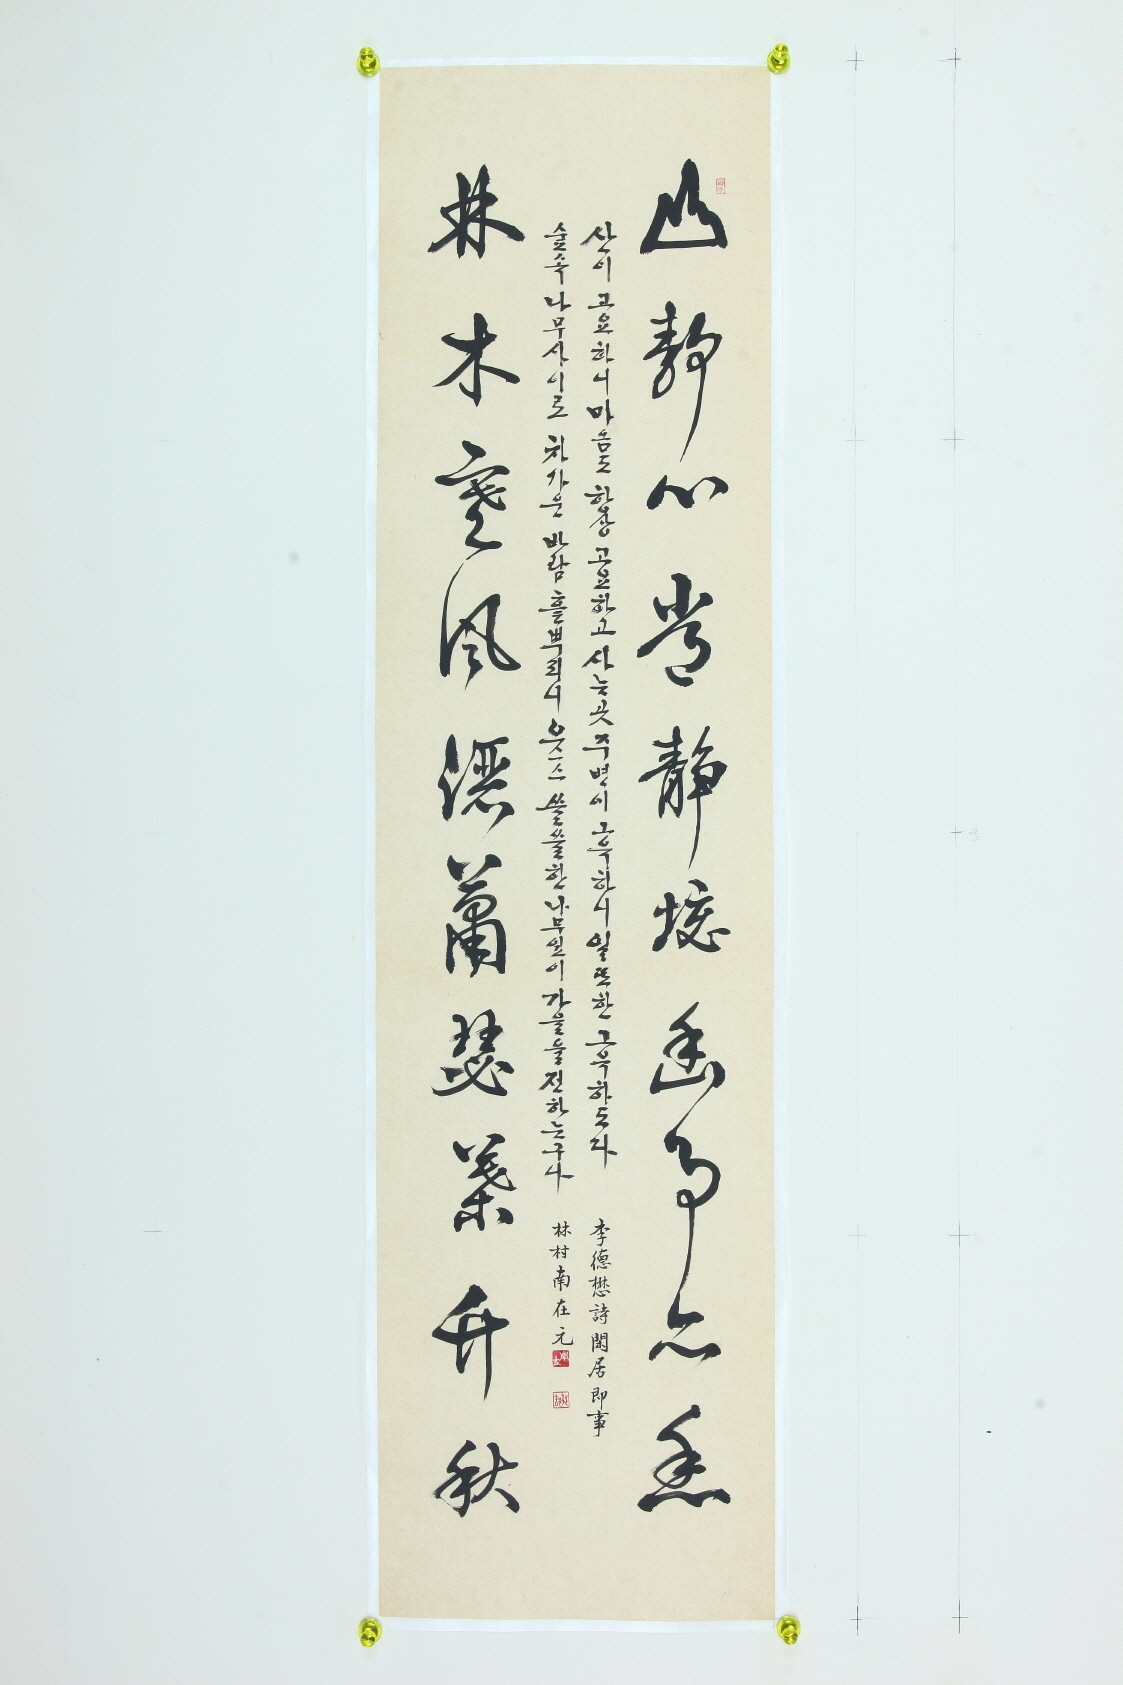 山靜心常靜境幽事亦幽
산이 고요하니 마음도 항상 고요하고 사는곳 주변이 그윽하니 일 또한 그윽하도다
李德懋詩 閑居即事
숲속 나무사이로 차가운 바람 흩뿌리니 으스스 쓸쓸한 나무잎이 가을을 전하는구나
林村 南在元
林木寒風灑蕭瑟葉秋